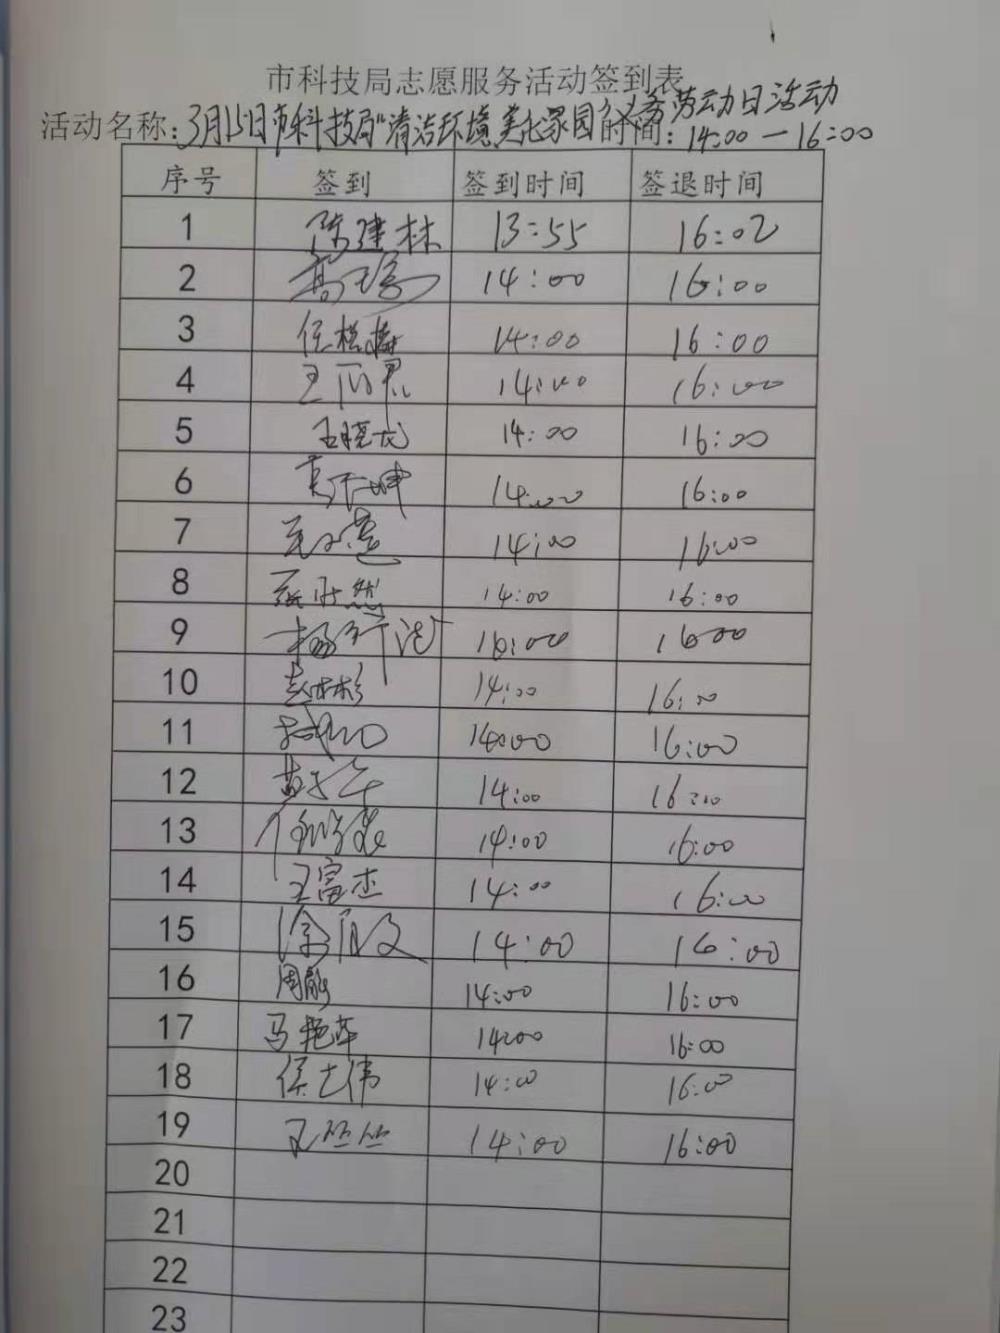 市科技局志愿服务活动签到表
活动名称:3月15日市科技局"清洁环境美化家园"义务劳动日活动
时间:14:00-16:00
序号 签到 签到时间 签退时间
1 陈建林 13:55 16:02
2 14:00 16:00
3 任桂梅 14:00 16:00
4 王 14:00 16:00
5 王晓龙 14:00 16:00
6 14:00 16:00
7 14:00 16:00
8 14:00 16:00
9 杨 16:00 16:00
10 赵彬彬 14:00 16:00
11 14:00 16:00
12 14:00 16:00
13 14:00 16:00
14 王富杰 14:00 16:00
15 徐 14:00 16:00
16 周 14:00 16:00
17 马艳萍 14:00 16:00
18 侯士伟 14:00 16:00
19 王丛丛 14:00 16:00
20
21
22
23